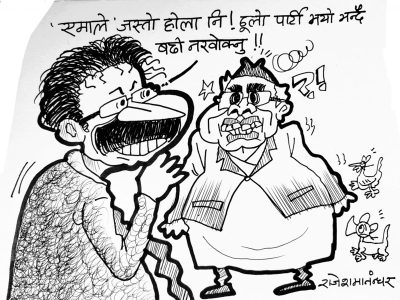 'एमाले' जस्तो होला नि! ठूलो पार्टी भयो भन्दै
बढी नखोक्नु!!
?!
राजेशमानन्धर